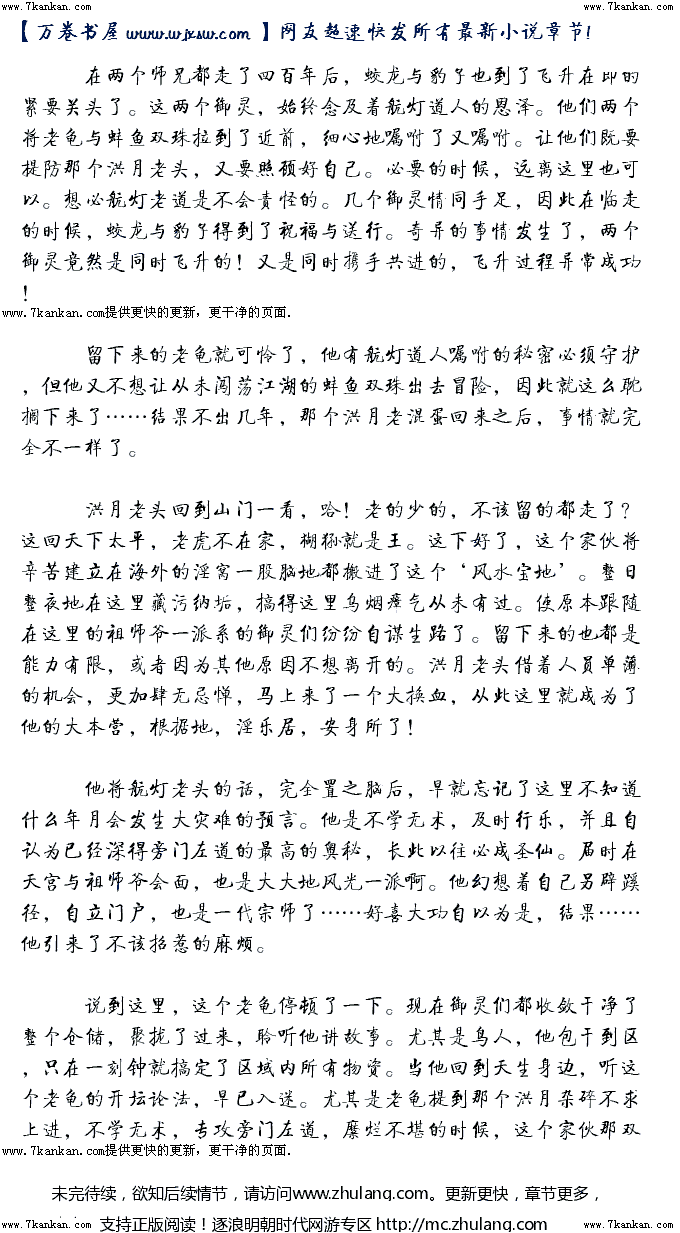 www.7kankan.com www.7kankan.com
【万卷书屋 www.wjxsw.com 】网友超速快发所有最新小说章节!
在两个师兄都走了四百年后，蛟龙与豹子也到了飞升在即的
紧要关头了。这两个御灵，始终念及着航灯道人的恩泽。他们两个
将老龟与蚌鱼双珠拉到了近前，细心地嘱咐了又嘱咐。让他们既要
提防那个洪月老头，又要照顾好自己。必要的时候，远离这里也可
以。想必航灯老道是不会责怪的。几个御灵情同手足，因此在临走
的时候，蛟龙与豹子得到了祝福与送行。奇异的事情发生了，两个
御灵竟然是同时飞升的！又是同时携手共进的，飞升过程异常成功
！
www.7kankan.com提供更快的更新，更干净的页面.
留下来的老龟就可怜了，他有航灯道人嘱咐的秘密必须守护
，但他又不想让从未闯荡江湖的蚌鱼双珠出去冒险，因此就这么耽
搁下来了……结果不出几年，那个洪月老混蛋回来之后，事情就完
全不一样了。
洪月老头回到山门一看，哈！老的少的，不该留的都走了？
这回天下太平，老虎不在家，猢狲就是王。这下好了，这个家伙将
辛苦建立在海外的淫窝一股脑地都搬进了这个‘风水宝地’。整日
整夜地在这里藏污纳垢，搞得这里乌烟瘴气从未有过。使原本跟随
在这里的祖师爷一派系的御灵们纷纷自谋生路了。留下来的也都是
能力有限，或者因为其他原因不想离开的。洪月老头借着人员单薄
的机会，更加肆无忌惮，马上来了一个大换血，从此这里就成为了
他的大本营，根据地，淫乐居，安身所了！
他将航灯老头的话，完全置之脑后，早就忘记了这里不知道
什么年月会发生大灾难的预言。他是不学无术，及时行乐，并且自
认为已经深得旁门左道的最高的奥秘，长此以往必成圣仙。届时在
天宫与祖师爷会面，也是大大地风光一派啊。他幻想着自己另辟蹊
径，自立门户，也是一代宗师了……好喜大功自以为是，结果……
他引来了不该招惹的麻烦。
说到这里，这个老龟停顿了一下。现在御灵们都收敛干净了
整个仓储，聚拢了过来，聆听他讲故事。尤其是鸟人，他包干到区
，只在一刻钟就搞定了区域内所有物资。当他回到天生身边，听这
个老龟的开坛论法，早已入迷。尤其是老龟提到那个洪月杂碎不求
上进，不学无术，专攻旁门左道，糜烂不堪的时候，这个家伙那双
www.7kankan.com提供更快的更新，更干净的页面.
未完待续，欲知后续情节，请访问www.zhulang.com。更新更快，章节更多，
www.7kankan.com 支持正版阅读！逐浪明朝时代网游专区 http://mc.zhulang.com www.7kankan.com